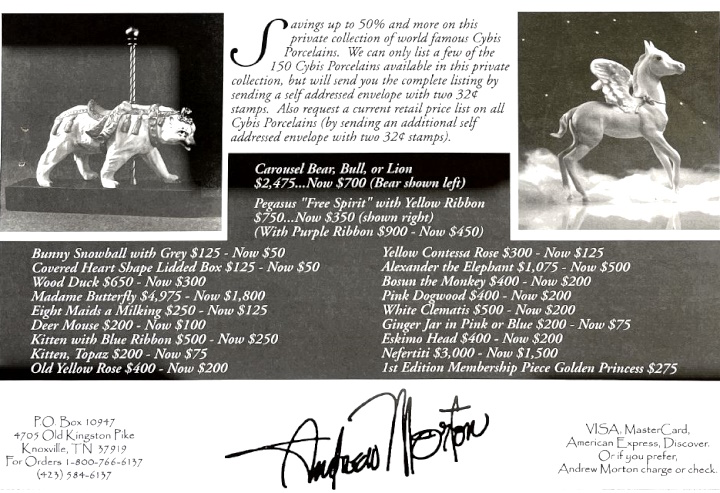 Savings up to 50% and more on this
private collection of world famous Cybis
Porcelains. We can only list a few of the
150 Cybis Porcelains available in this private
collection, but will send you the complete listing by
sending a self addressed envelope with two 32¢
stamps. Also request a current retail price list on all
Cybis Porcelains (by sending an additional self
addressed envelope with two 32¢ stamps).
Carousel Bear, Bull, or Lion
$2,475...Now $700 (Bear shown left)
Pegasus "Free Spirit" with Yellow Ribbon
$750...Now $350 (shown right)
(With Purple Ribbon $900 - Now $450)
Bunny Snowball with Grey $125 - Now $50
Covered Heart Shape Lidded Box $125 - Now $50
Wood Duck $650 - Now $300
Madame Butterfly $4,975 - Now $1,800
Eight Maids a Milking $250 - Now $125
Deer Mouse $200 - Now $100
Kitten with Blue Ribbon $500 - Now $250
Kitten, Topaz $200 - Now $75
Old Yellow Rose $400 - Now $200
Yellow Contessa Rose $300 - Now $125
Alexander the Elephant $1,075 - Now $500
Bosun the Monkey $400 - Now $200
Pink Dogwood $400 - Now $200
White Clematis $500 - Now $200
Ginger Jar in Pink or Blue $200 - Now $75
Eskimo Head $400 - Now $200
Nefertiti $3,000 - Now $1,500
1st Edition Membership Piece Golden Princess $275
P.O. Box 10947
4705 Old Kingston Pike
Knoxville, TN 37919
For Orders 1-800-766-6137
(423) 584-6137
Andrew Morton
VISA, MasterCard,
American Express, Discover.
Or if you prefer,
Andrew Morton charge or check.